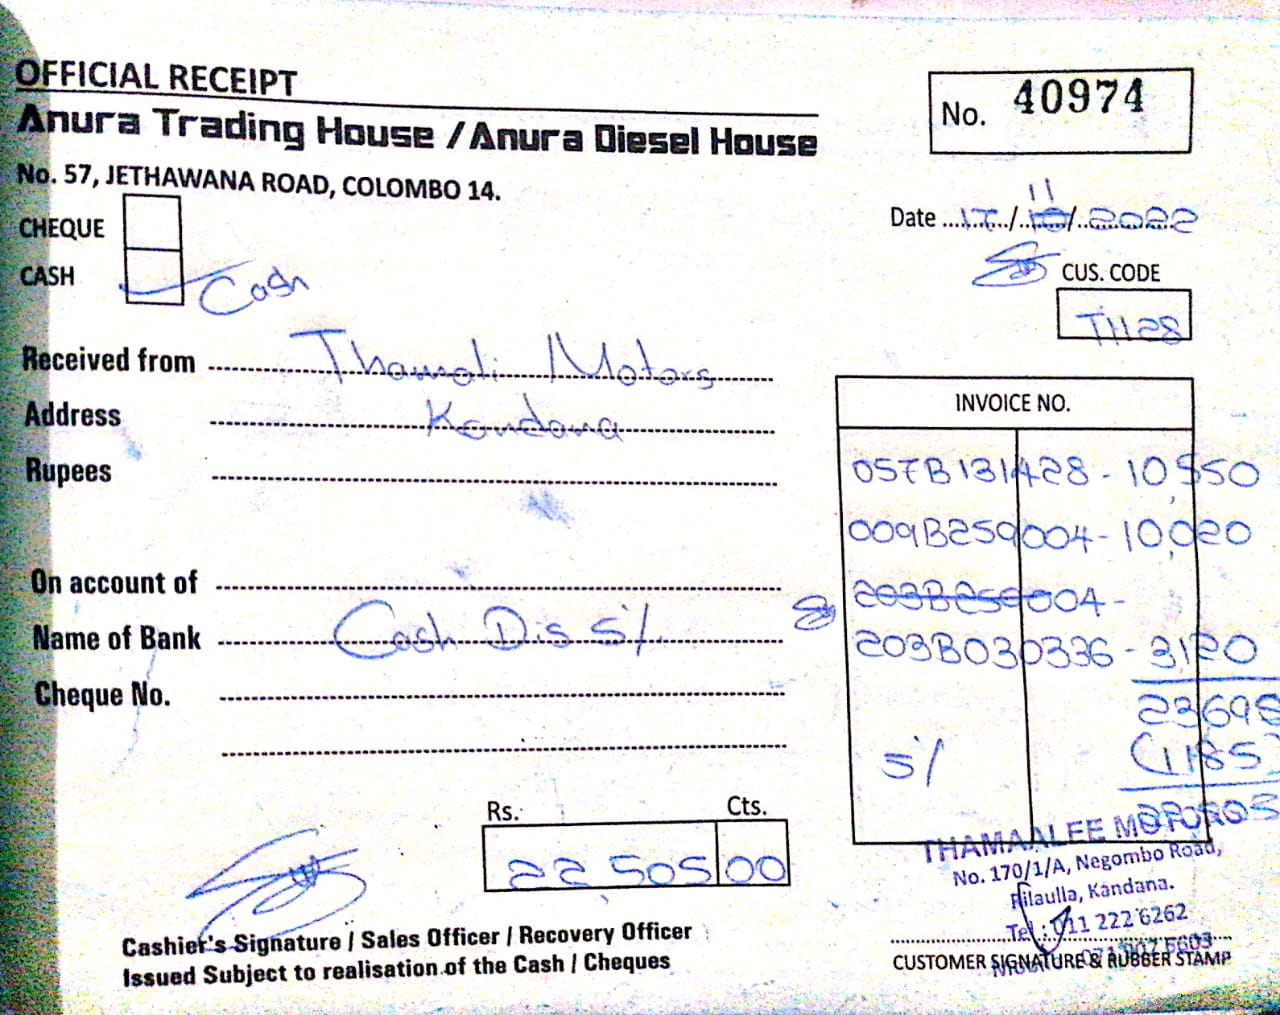 OFFICIAL RECEIPT
No. 40974
Anura Trading House / Anura Diesel House
No. 57, JETHAWANA ROAD, COLOMBO 14.
11
Date 17/10/2022
CHEQUE
CASH Cash
CUS. CODE
T1128
Received from Thamali Motors
Address Kandana
Rupees
INVOICE NO.
057B131428 - 10,550
009B259004 - 10,020
203B259004 -
203B030336 - 3120
23695
5% (1185)
22505
On account of
Name of Bank Cash Dis 5%
Cheque No.
Rs. Cts.
22 505 00
Cashier's Signature / Sales Officer / Recovery Officer
Issued Subject to realisation of the Cash / Cheques
THAMAALEE MOTORS
No. 170/1/A, Negombo Road,
Rilaulla, Kandana.
Tel : 011 222 6262
CUSTOMER SIGNATURE & RUBBER STAMP